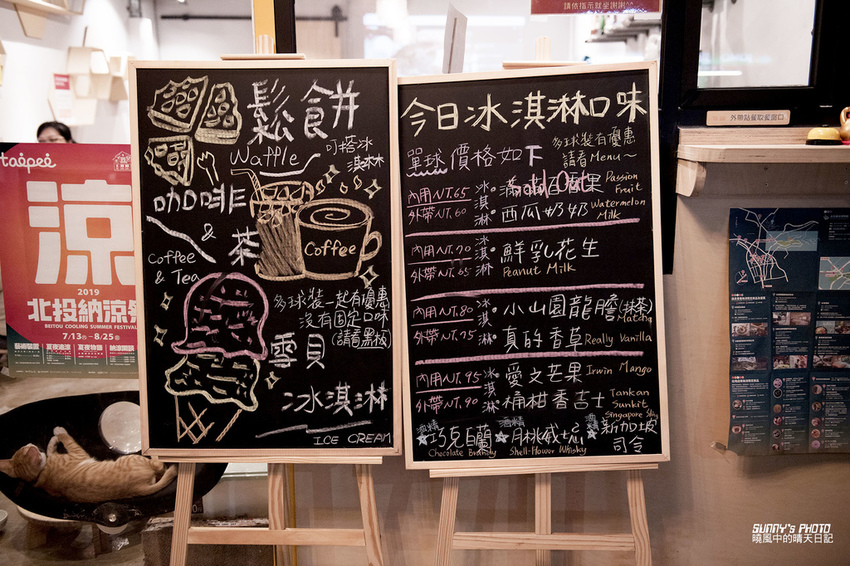 請依指示就是謝謝
外帶點餐取餐窗口
taipei
涼
2019
北投納涼祭
BEITOU COOLING SUMMER FESTIVAL
7/13 ~ 8/25
鬆餅
Waffle
可搭冰
淇淋
咖啡
&
茶
Coffee
& Tea
Coffee
多球裝一起有優惠
沒有固定口味
(請看黑板)
雪貝
冰淇淋
ICE CREAM
今日冰淇淋口味
單球價格如下
多球裝有優惠
請看Menu~
內用NT.65
外帶NT.60
冰淇淋
Sold Out
滿滿百香果 Passion Fruit
西瓜奶奶 Watermelon Milk
內用NT.70
外帶NT.65
冰淇淋
鮮乳花生
Peanut Milk
內用NT.80
外帶NT.75
冰淇淋
小山園龍膽(抹茶) Matcha
真的香草 Really Vanilla
內用NT.95
外帶NT.90
冰淇淋
愛文芒果 Irwin Mango
桶柑香吉士 Tankan Sunkit
酒精 巧克白蘭
Chocolate Brandy
酒精 月桃威士忌
Shell-Flower Whisky
酒精 新加坡司令
Singapore Sling
SUNNY'S PHOTO
曉風中的晴天日記